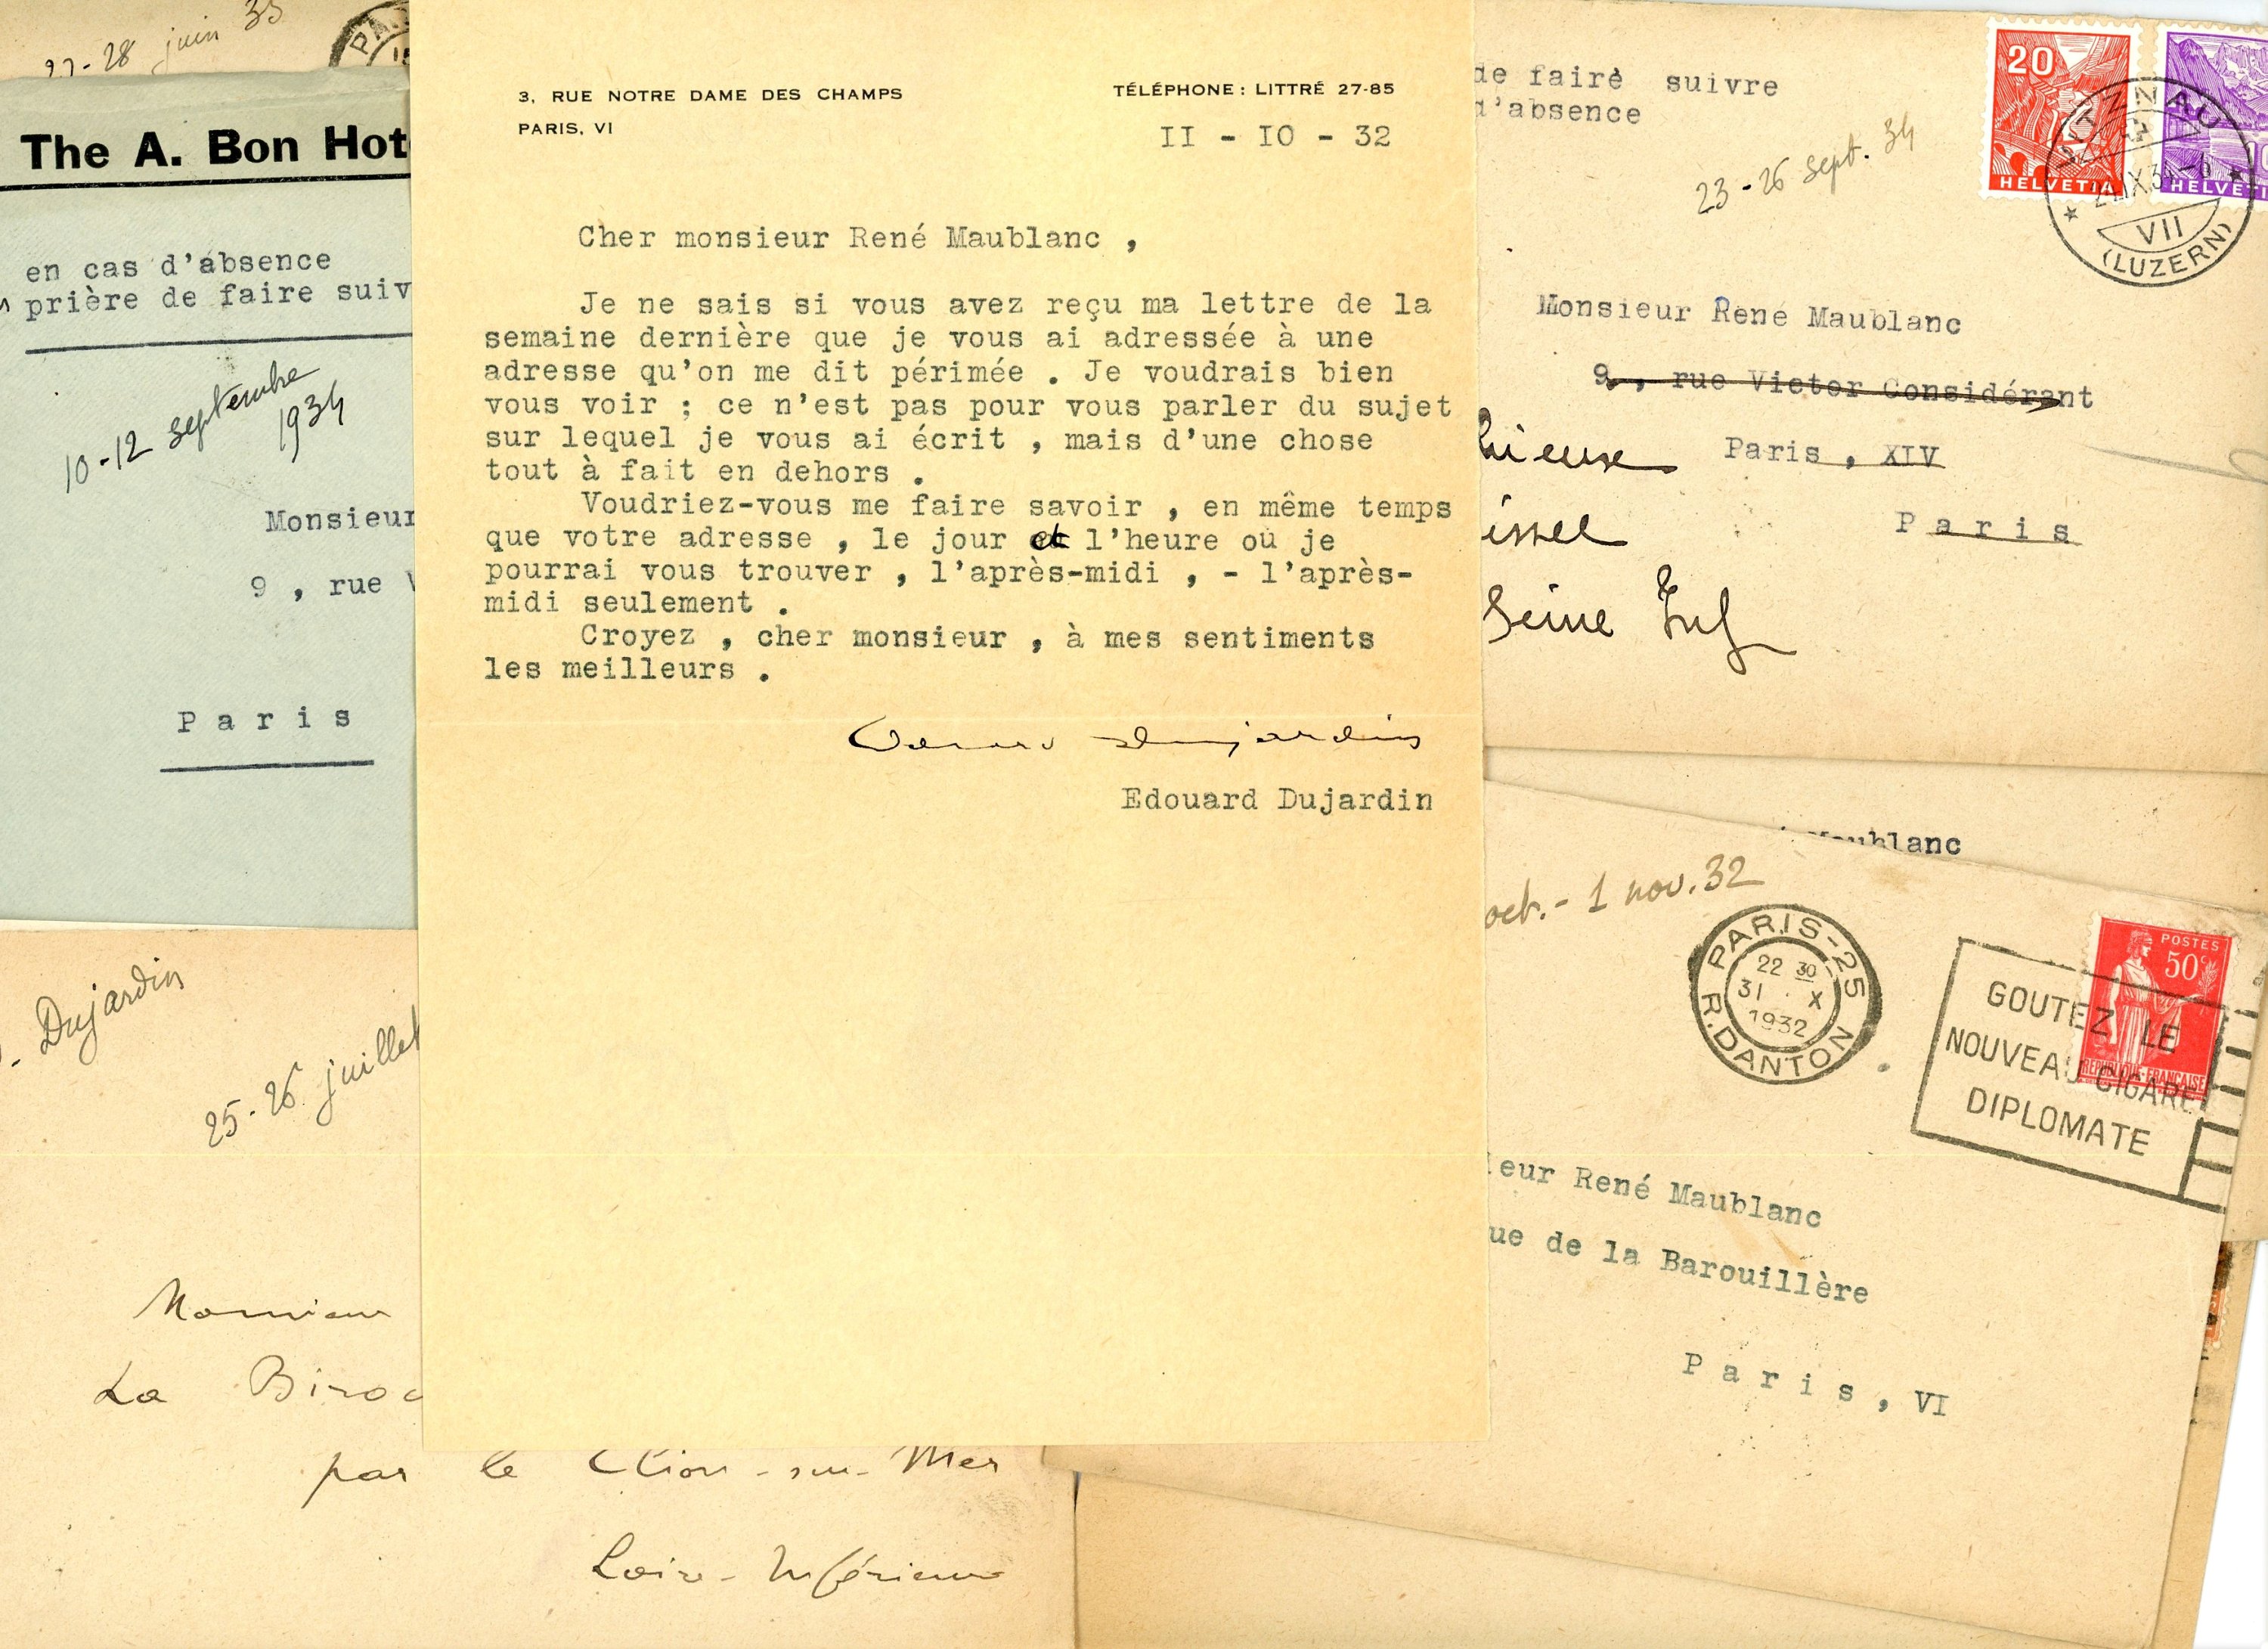 27-28 juin 35
The A. Bon Hot
en cas d'absence
prière de faire suiv
10-12 septembre
1934
Monsieur
9 , rue V
P a r i s
3, RUE NOTRE DAME DES CHAMPS
PARIS, VI
TÉLÉPHONE : LITTRÉ 27-85
II - IO - 32
Cher monsieur René Maublanc ,
Je ne sais si vous avez reçu ma lettre de la
semaine dernière que je vous ai adressée à une
adresse qu'on me dit périmée . Je voudrais bien
vous voir ; ce n'est pas pour vous parler du sujet
sur lequel je vous ai écrit , mais d'une chose
tout à fait en dehors .
Voudriez-vous me faire savoir , en même temps
que votre adresse , le jour et l'heure où je
pourrai vous trouver , l'après-midi , - l'après-
midi seulement .
Croyez , cher monsieur , à mes sentiments
les meilleurs .
Edouard Dujardin
Edouard Dujardin
de faire suivre
d'absence
23-26 sept. 34
20
HELVETIA
HELVETI
VITZNAU
VII
(LUZERN)
Monsieur René Maublanc
9 , rue Victor Considérant
Paris , XIV
P a r i s
Seine Inf
Maublanc
oct. - 1 nov. 32
PARIS-25
22 30
31 X
1932
R. DANTON
POSTES
50c
REPUBLIQUE-FRANÇAISE
GOUTEZ LE
NOUVEAU CIGARE
DIPLOMATE
ieur René Maublanc
ue de la Barouillère
P a r i s , VI
Dujardin
25-26 juillet
Monsieur
La Biroc
par le Clion-sur-Mer
Loire-Inférieure